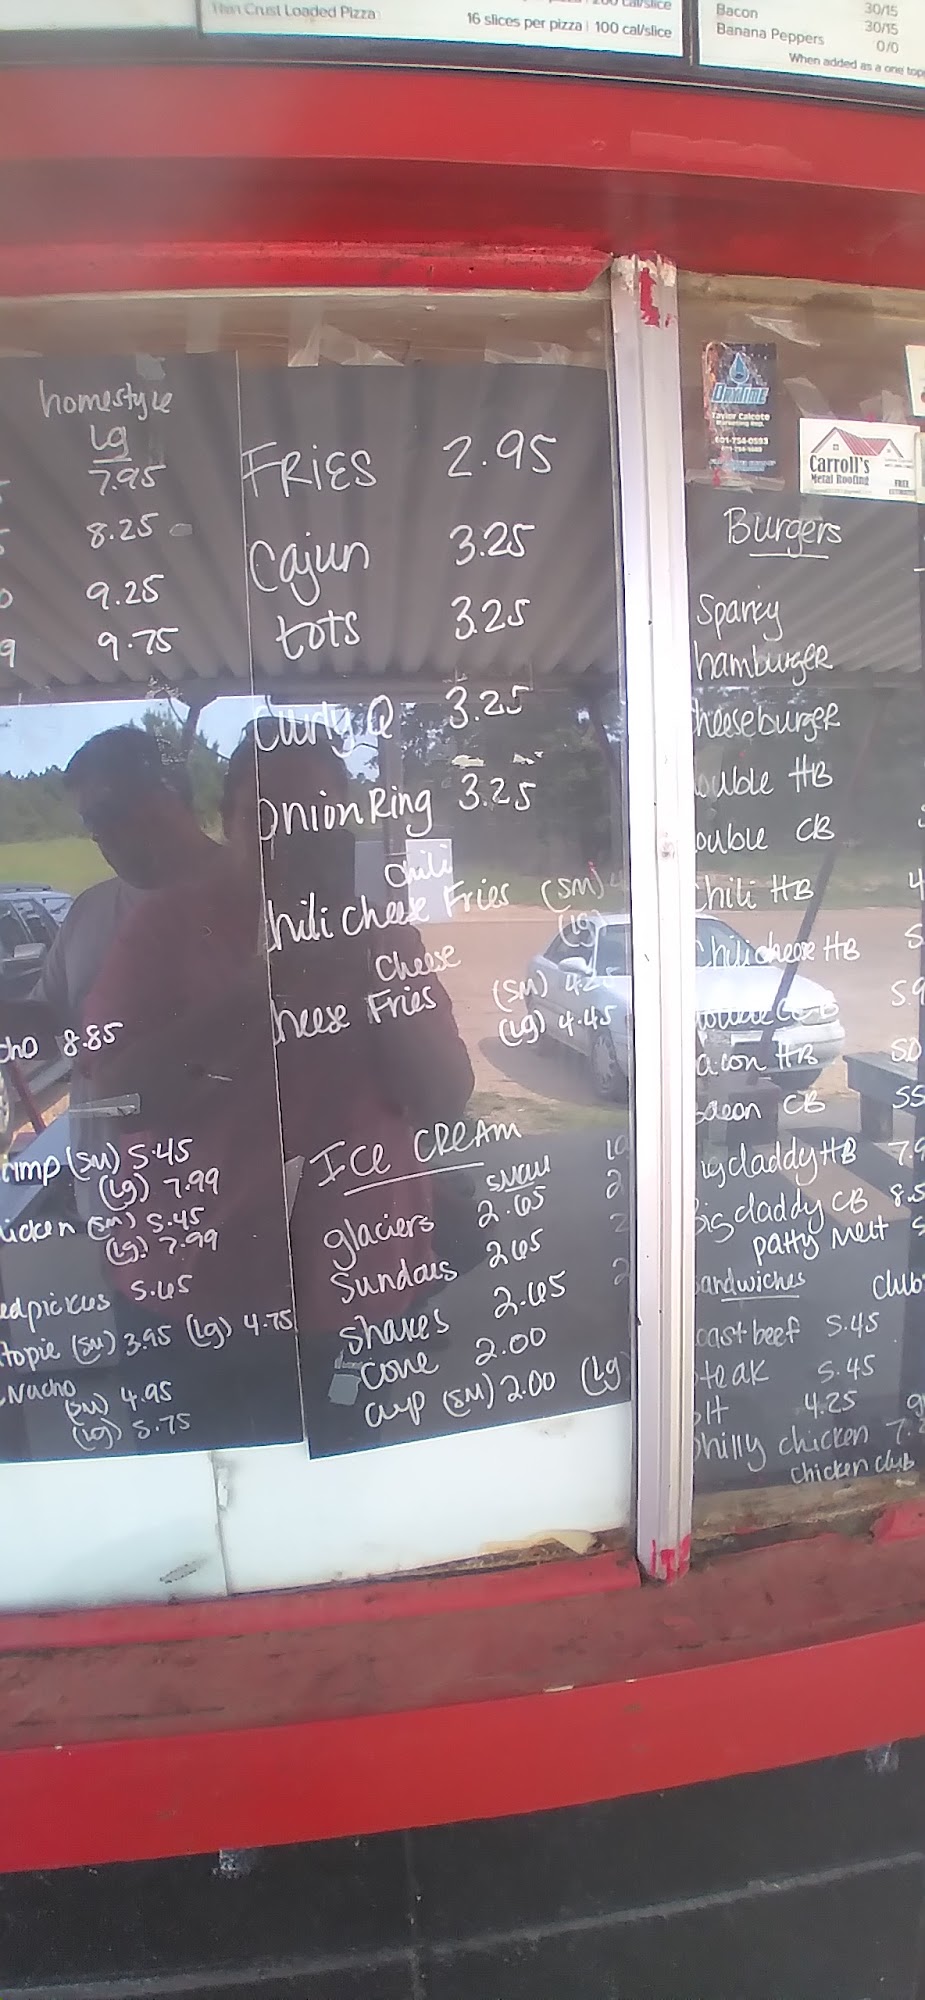 Thin Crust Loaded Pizza
16 slices per pizza | 100 cal/slice
Bacon 30/15
30/15
Banana Peppers 0/0
When added as a one top
homestyle
Lg
7.95
8.25
9.25
9 9.75
cho 8.85
rimp (SM) 5.45
(Lg) 7.99
icken (SM) 5.45
(Lg) 7.99
edpickles 5.45
topie (SM) 3.95 (Lg) 4.75
Nacho
(SM) 4.95
(Lg) 5.75
FRIES 2.95
Cajun 3.25
tots 3.25
Curly Q 3.25
Onion Ring 3.25
chili
hili cheese Fries (SM)
(Lg)
Cheese
heese Fries (SM) 4.25
(Lg) 4.45
ICE CREAM
small
glaciers 2.65
Sundaes 2.65
shakes 2.65
cone 2.00
cup (SM) 2.00 (Lg
Taylor Calcote
Marketing Rep.
601-754-0593
Carroll's
Metal Roofing
FREE
Burgers
Sparky
hamburger
heeseburger
ouble HB
ouble CB
Chili HB 4
Chilicheese HB
acon HB
acon CB
igdaddy HB 7.9
Big daddy CB 8.5
patty melt
andwiches Club
oast beef 5.45
teak 5.45
lt 4.25
philly chicken 7.
chicken club